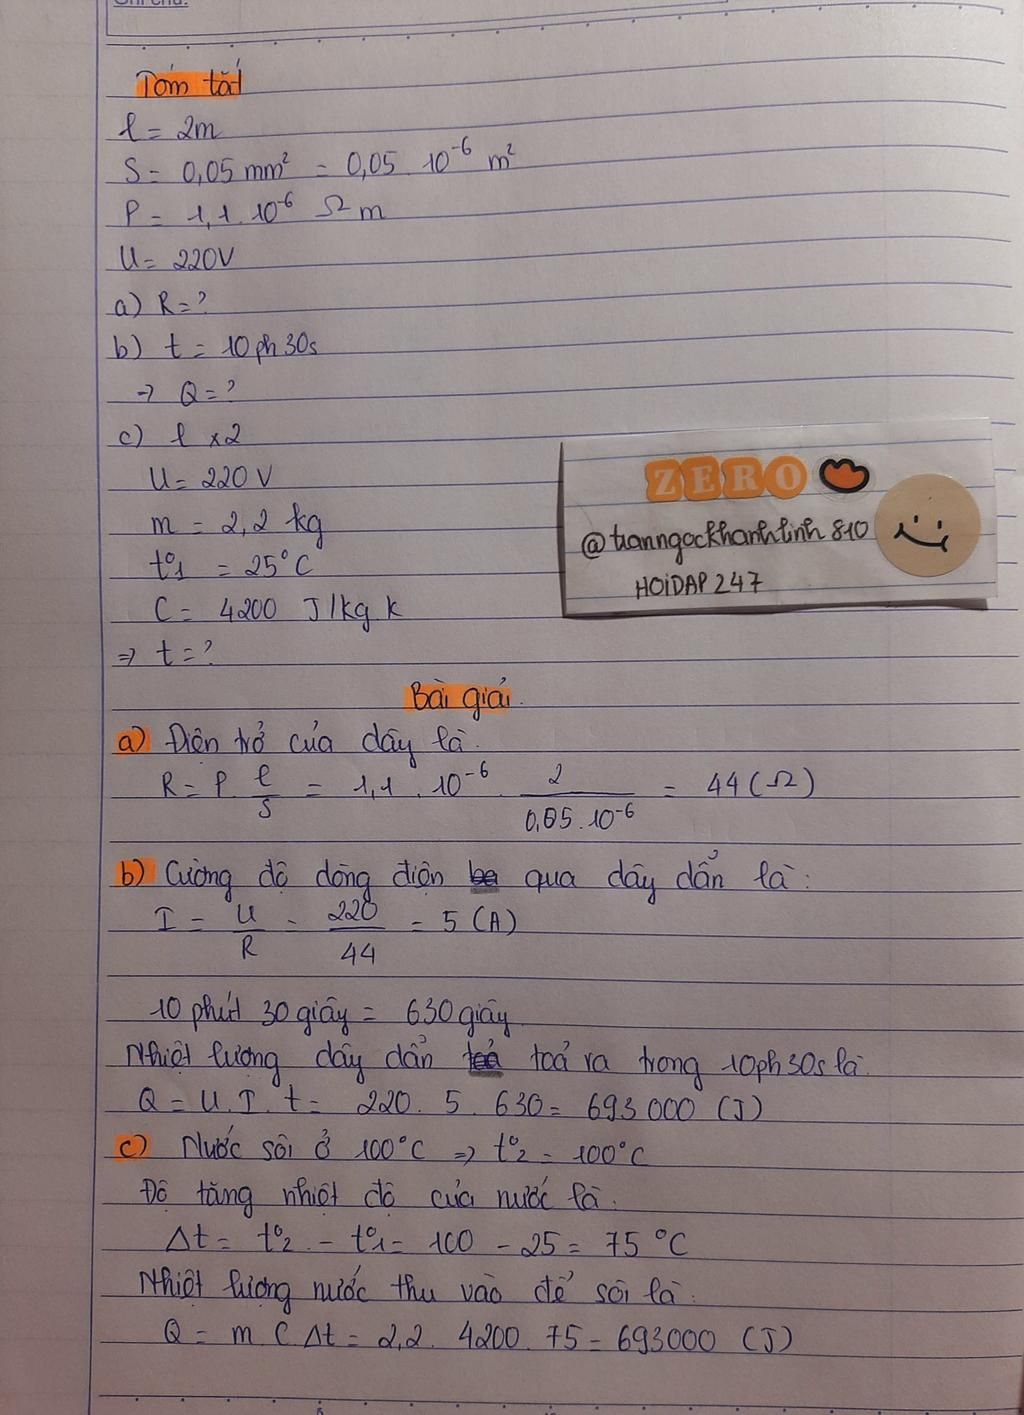 Tóm tắt
l = 2m
S = 0,05 mm² = 0,05 . 10⁻⁶ m²
P = 1,1 . 10⁻⁶ Ω m
U = 220V
a) R = ?
b) t = 10 ph 30s
→ Q = ?
c) l x2
U = 220 V
m = 2,2 kg
t°1 = 25°C
C = 4200 J/kg.k
⇒ t = ?
ZERO
@tranngockhanhlinh810
HOIDAP247
Bài giải.
a) Điện trở của dây là.
R = P . l/S = 1,1 . 10⁻⁶ . 2/0,05.10⁻⁶ = 44 (Ω)
b) Cường độ dòng điện qua dây dẫn là:
I = U/R = 220/44 = 5 (A)
10 phút 30 giây = 630 giây.
Nhiệt lượng dây dẫn toả ra trong 10ph30s là.
Q = U.I.t = 220 . 5 . 630 = 693 000 (J)
c) Nước sôi ở 100°C ⇒ t°2 = 100°C
Độ tăng nhiệt độ của nước là.
Δt = t°2 - t°1 = 100 - 25 = 75 °C
Nhiệt lượng nước thu vào để sôi là:
Q = m C Δt = 2,2 . 4200 . 75 = 693000 (J)